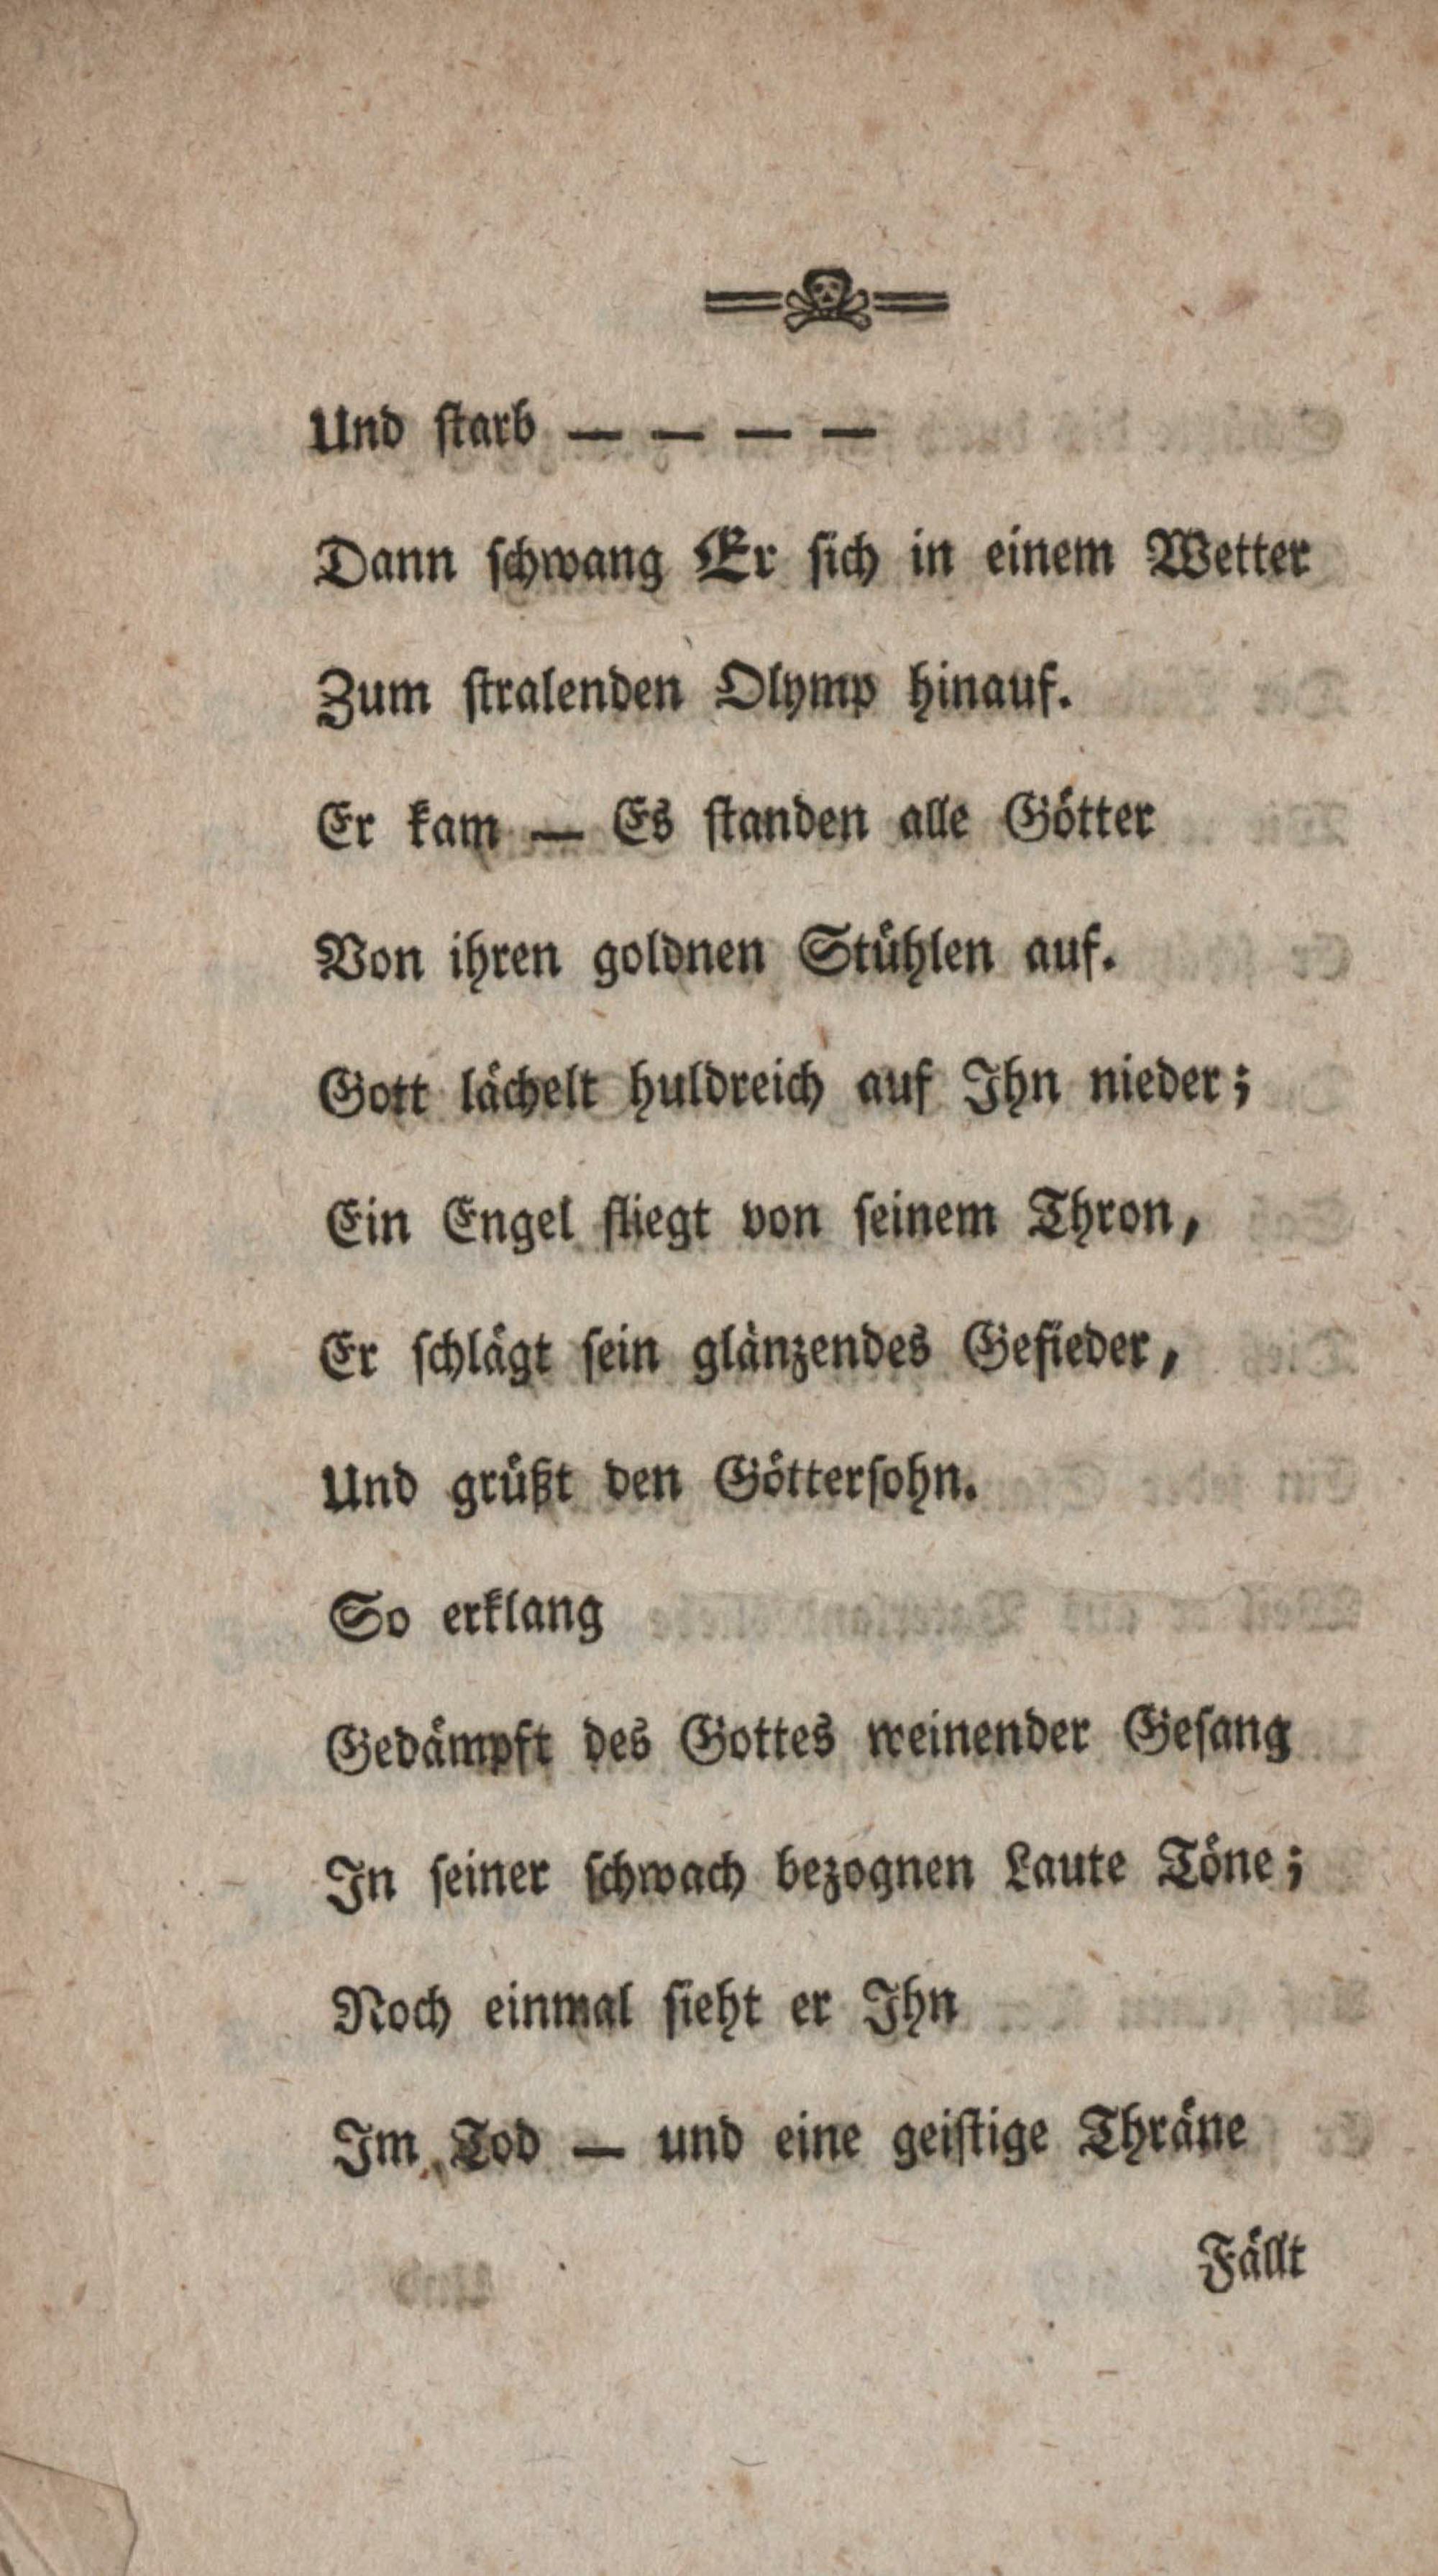 Und starb — — — —
Dann schwang Er sich in einem Wetter
Zum stralenden Olymp hinauf.
Er kam — Es standen alle Götter
Von ihren goldnen Stühlen auf.
Gott lächelt huldreich auf Ihn nieder;
Ein Engel fliegt von seinem Thron,
Er schlägt sein glänzendes Gefieder,
Und grüßt den Göttersohn.
So erklang
Gedämpft des Gottes weinender Gesang
In seiner schwach bezognen Laute Töne;
Noch einmal sieht er Ihn
Im Tod — und eine geistige Thräne
Fällt